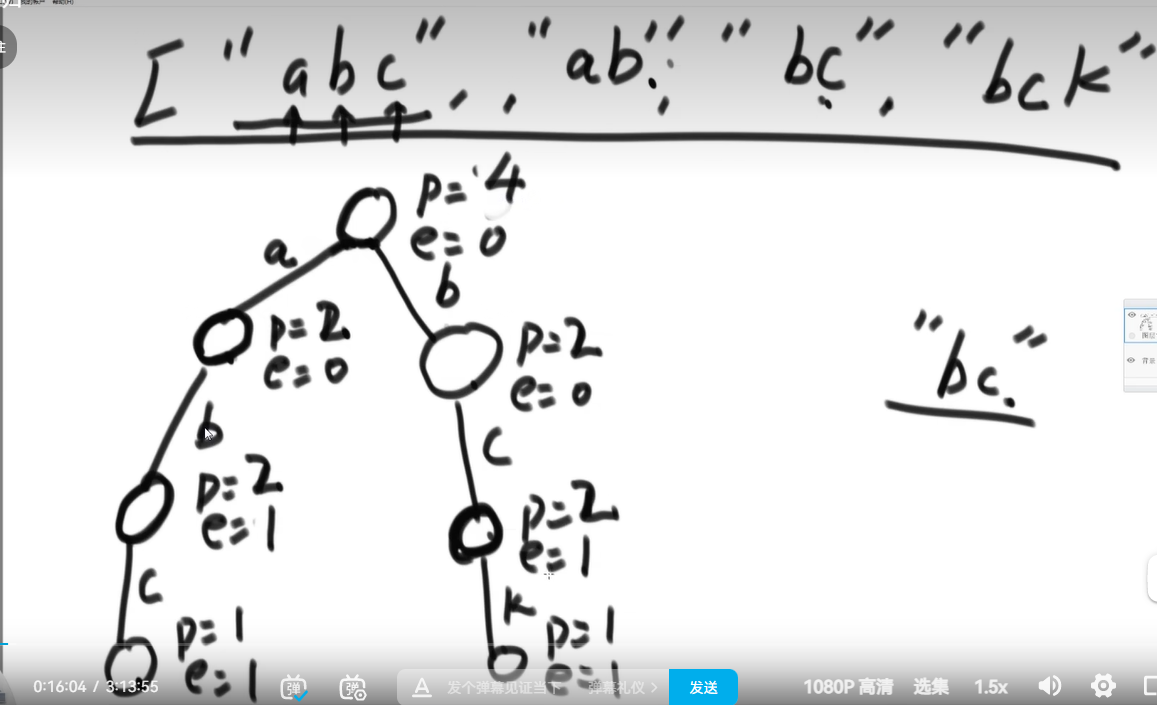 ["abc", "ab", "bc", "bck"
p=4
e=0
a
b
p=2
e=0
p=2
e=0
"bc"
b
c
p=2
e=1
p=2
e=1
c
k
p=1
e=1
p=1
e=1
0:16:04 / 3:13:55
弹
弹
A
发个弹幕见证当下
弹幕礼仪 >
发送
1080P 高清
选集
1.5x